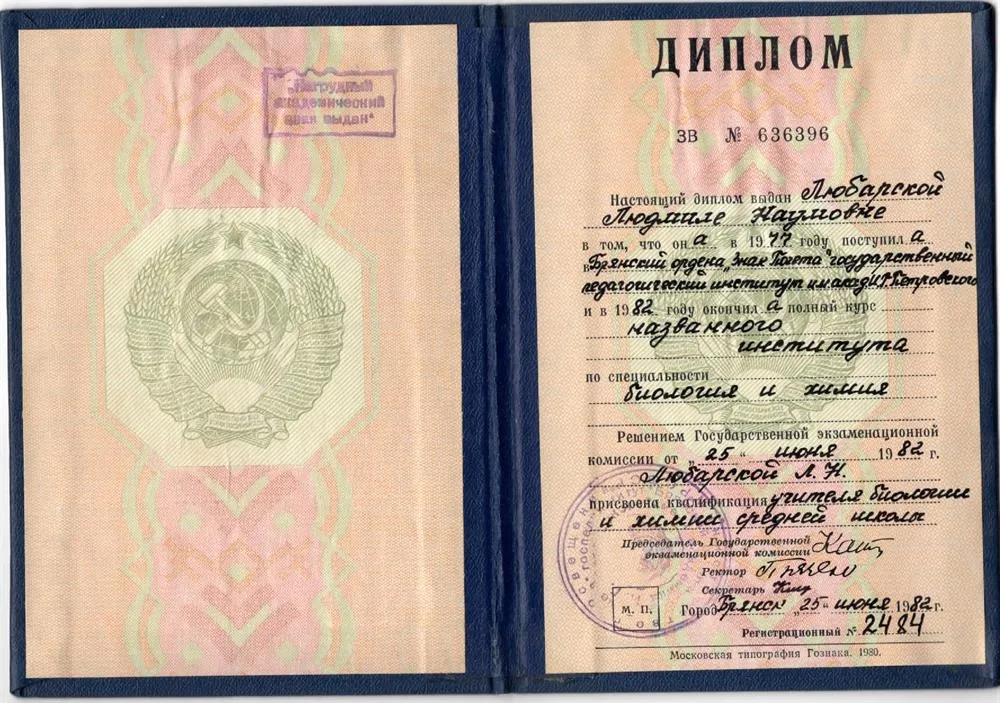 „Нагрудный
академический
знак выдан“
ДИПЛОМ
ЗВ № 636396
Настоящий диплом выдан Любарской
Людмиле Наумовне
в том, что он а в 1977 году поступил а
в Брянский ордена „Знак Почета“ государственный
педагогический институт им. акад. И.Г. Петровского
и в 1982 году окончил а полный курс
названного
института
по специальности
биология и химия
Решением Государственной экзаменационной
комиссии от „25“ июня 1982 г.
Любарской Л. Н.
присвоена квалификация учителя биологии
и химии средней школы
Председатель Государственной
экзаменационной комиссии
Ректор
Секретарь
М. П.
Город Брянск „25“ июня 1982 г.
Регистрационный № 2484
Московская типография Гознака. 1980.